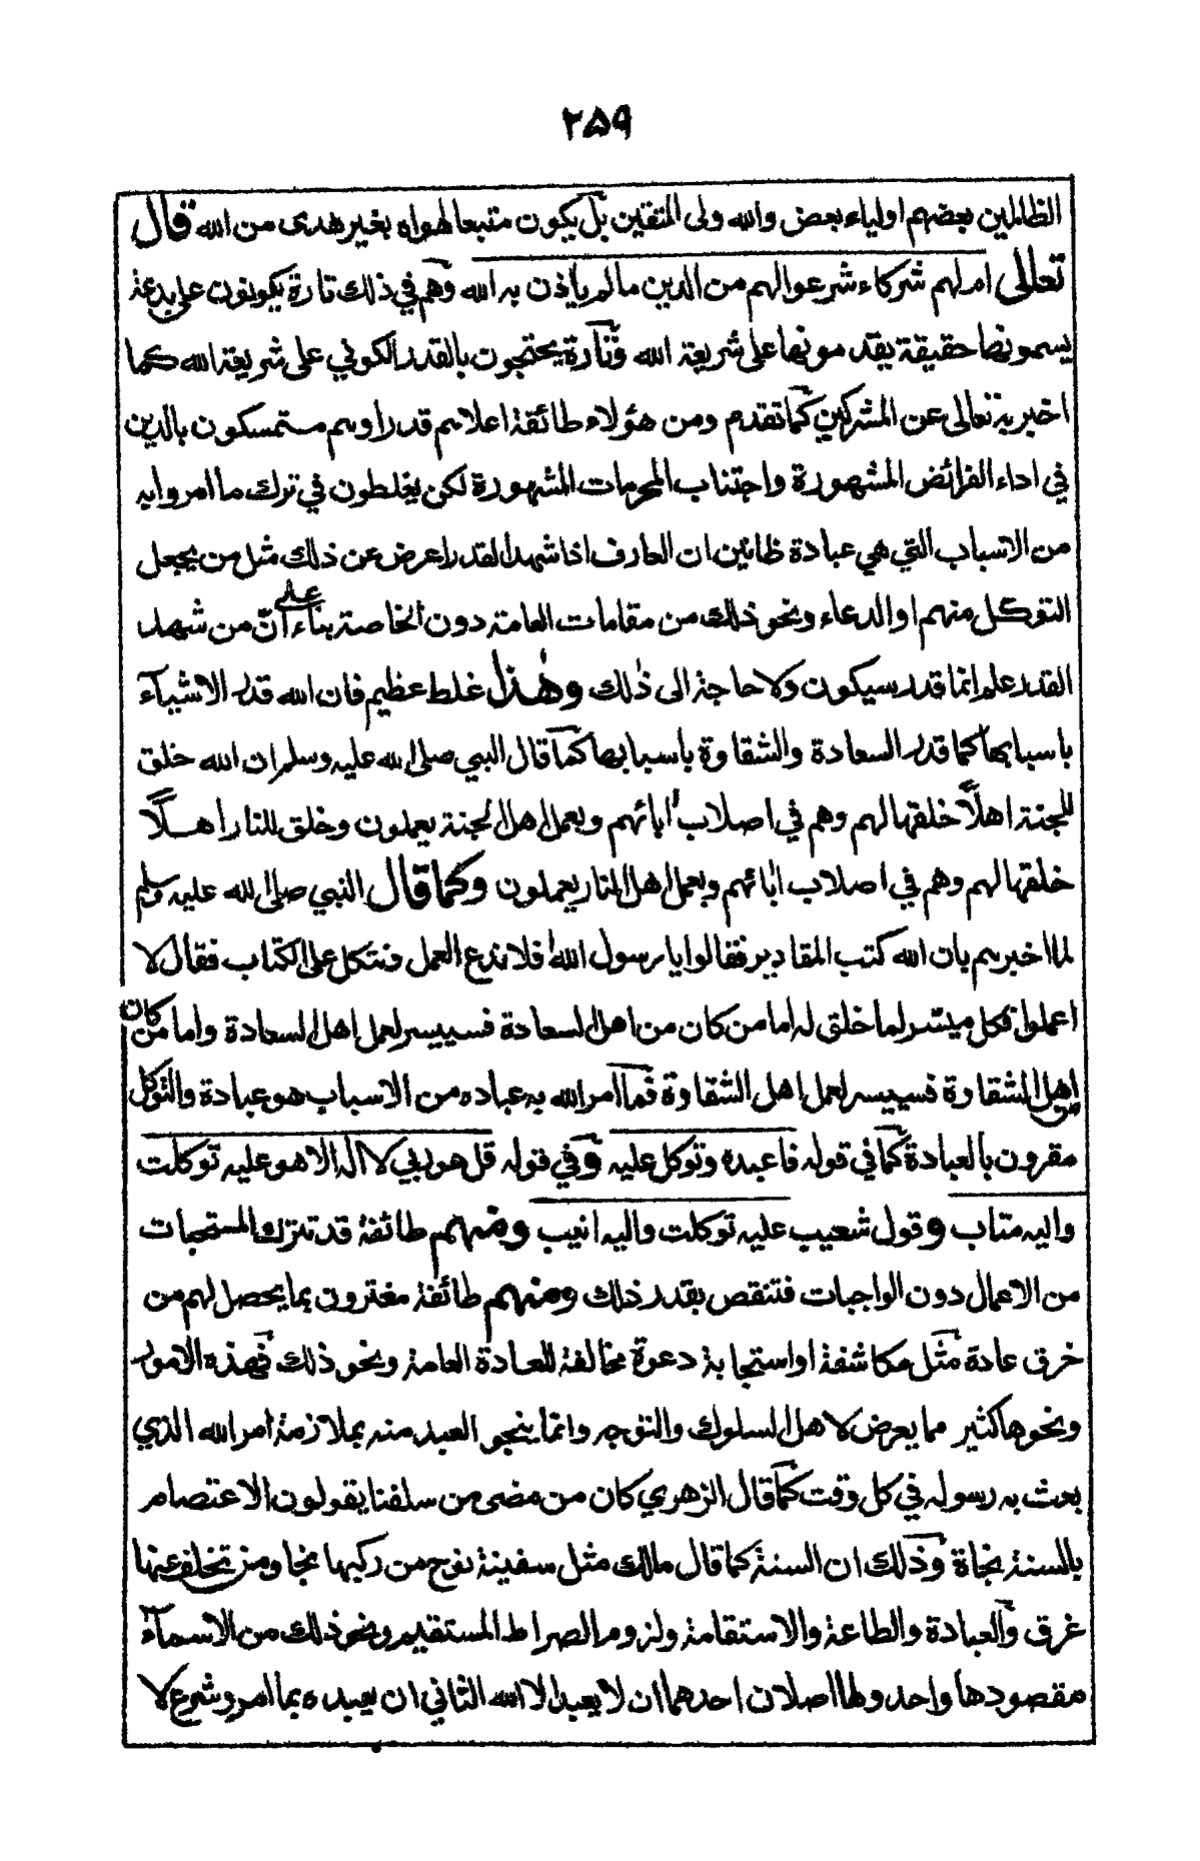 ۲۵۹
الظالمين بعضهم اولياء بعض والله ولى المتقين بل يكون متبعا لهواه بغير هدى من الله قال
تعالى ام لهم شركاء شرعوا لهم من الدين ما لم يأذن به الله وهم في ذلك تارة يكونون على بدعة
يسمونها حقيقة يقدمونها على شريعة الله وتارة يحتجون بالقدر الكوني على شريعة الله كما
اخبر به تعالى عن المشركين كما تقدم ومن هؤلاء طائفة اعلاهم قدرا وهم مستمسكون بالدين
في اداء الفرائض المشهورة واجتناب المحرمات المشهورة لكن يغلطون في ترك ما امروا به
من الاسباب التي هي عبادة ظانين ان العارف اذا شهد القدر اعرض عن ذلك مثل من يجعل
التوكل منهم او الدعاء ونحو ذلك من مقامات العامة دون الخاصة بناء على انّ من شهد
القدر علم انما قدر سيكون ولا حاجة الى ذلك وهذا غلط عظيم فان الله قدر الاشياء
باسبابها كما قدر السعادة والشقاوة باسبابها كما قال النبي صلى الله عليه وسلم ان الله خلق
للجنة اهلاً خلقها لهم وهم في اصلاب ابائهم وبعمل اهل الجنة يعملون وخلق للنار اهلًا
خلقها لهم وهم في اصلاب ابائهم وبعمل اهل النار يعملون وكما قال النبي صلى الله عليه وسلم
لما اخبرهم بان الله كتب المقادير فقالوا يا رسول الله افلا ندع العمل ونتكل على الكتاب فقال لا
اعملوا فكل ميسر لما خلق له اما من كان من اهل السعادة فسييسر لعمل اهل السعادة واما من كان
من اهل الشقاوة فسييسر لعمل اهل الشقاوة فما امر الله به عباده من الاسباب هو عبادة والتوكل
مقرون بالعبادة كما في قوله فاعبده وتوكل عليه وفي قوله قل هو ربي لا اله الا هو عليه توكلت
واليه متاب وقول شعيب عليه توكلت واليه انيب ومنهم طائفة قد تترك المستحبات
من الاعمال دون الواجبات فتنقص بقدر ذلك ومنهم طائفة مغترون بما يحصل لهم من
خرق عادة مثل مكاشفة او استجابة دعوة مخالفة للعادة العامة ونحو ذلك فهذه الامور
ونحوها كثير مما يعرض لاهل السلوك والتوجه وانما ينجو العبد منه بملازمة امر الله الذي
بعث به رسوله في كل وقت كما قال الزهري كان من مضى من سلفنا يقولون الاعتصام
بالسنة نجاة وذلك ان السنة كما قال مالك مثل سفينة نوح من ركبها نجا ومن تخلف عنها
غرق والعبادة والطاعة والاستقامة ولزوم الصراط المستقيم ونحو ذلك من الاسماء
مقصودها واحد ولها اصلان احدهما ان لا يعبد الا الله الثاني ان يعبده بما امر وشرع لا